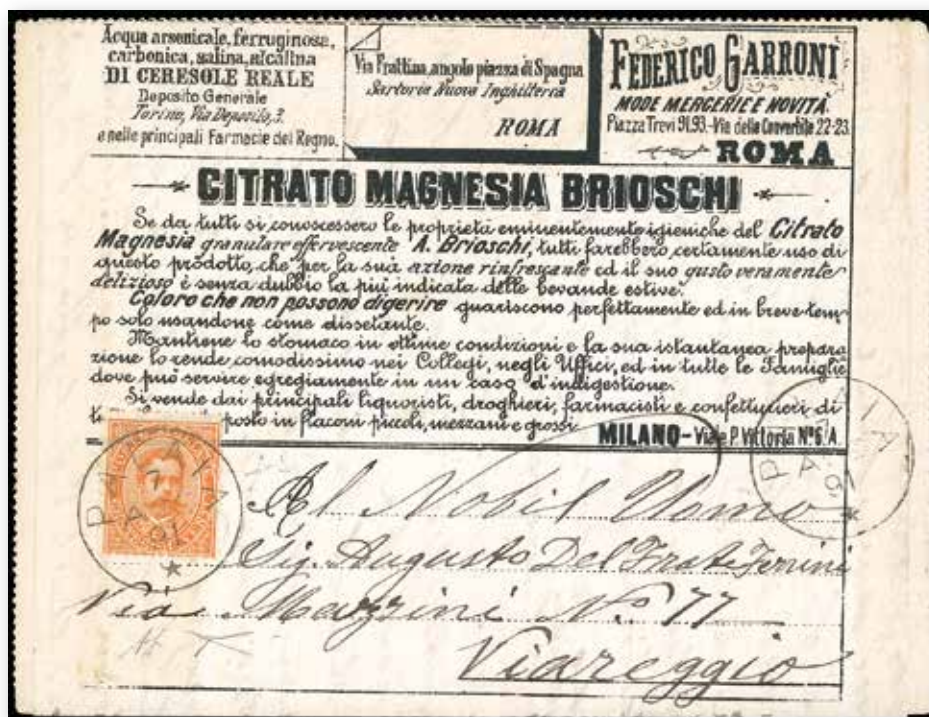 Acqua arsenicale, ferruginosa,
carbonica, salina, alcalina
DI CERESOLE REALE
Deposito Generale
Torino, Via Deposito, 3.
e nelle principali Farmacie del Regno.
Via Frattina, angolo piazza di Spagna
Sartoria Nuova Inghilterra
ROMA
FEDERICO GARRONI
MODE MERCERIE E NOVITÀ
Piazza Trevi 91.93.-Via delle Convertite 22-23.
ROMA
CITRATO MAGNESIA BRIOSCHI
Se da tutti si conoscessero le proprietà eminentemente igieniche del Citrato
Magnesia granulare effervescente A. Brioschi, tutti farebbero certamente uso di
questo prodotto, che per la sua azione rinfrescante ed il suo gusto veramente
delizioso è senza dubbio la più indicata delle bevande estive.
Coloro che non possono digerire guariscono perfettamente ed in breve tem-
po solo usandone come dissetante.
Mantiene lo stomaco in ottime condizioni e la sua istantanea prepara
zione lo rende comodissimo nei Collegi, negli Uffici, ed in tutte le Famiglie
dove può servire egregiamente in un caso d'indigestione.
Si vende dai principali liquoristi, droghieri, farmacisti e confetturieri di
posto in flaconi piccoli, mezzani e grossi
MILANO - Viale P. Vittoria Nº 6. A.
Al Nobil Uomo
Sig. Augusto Del Frate
Via Mazzini No. 77
Viareggio
91
91